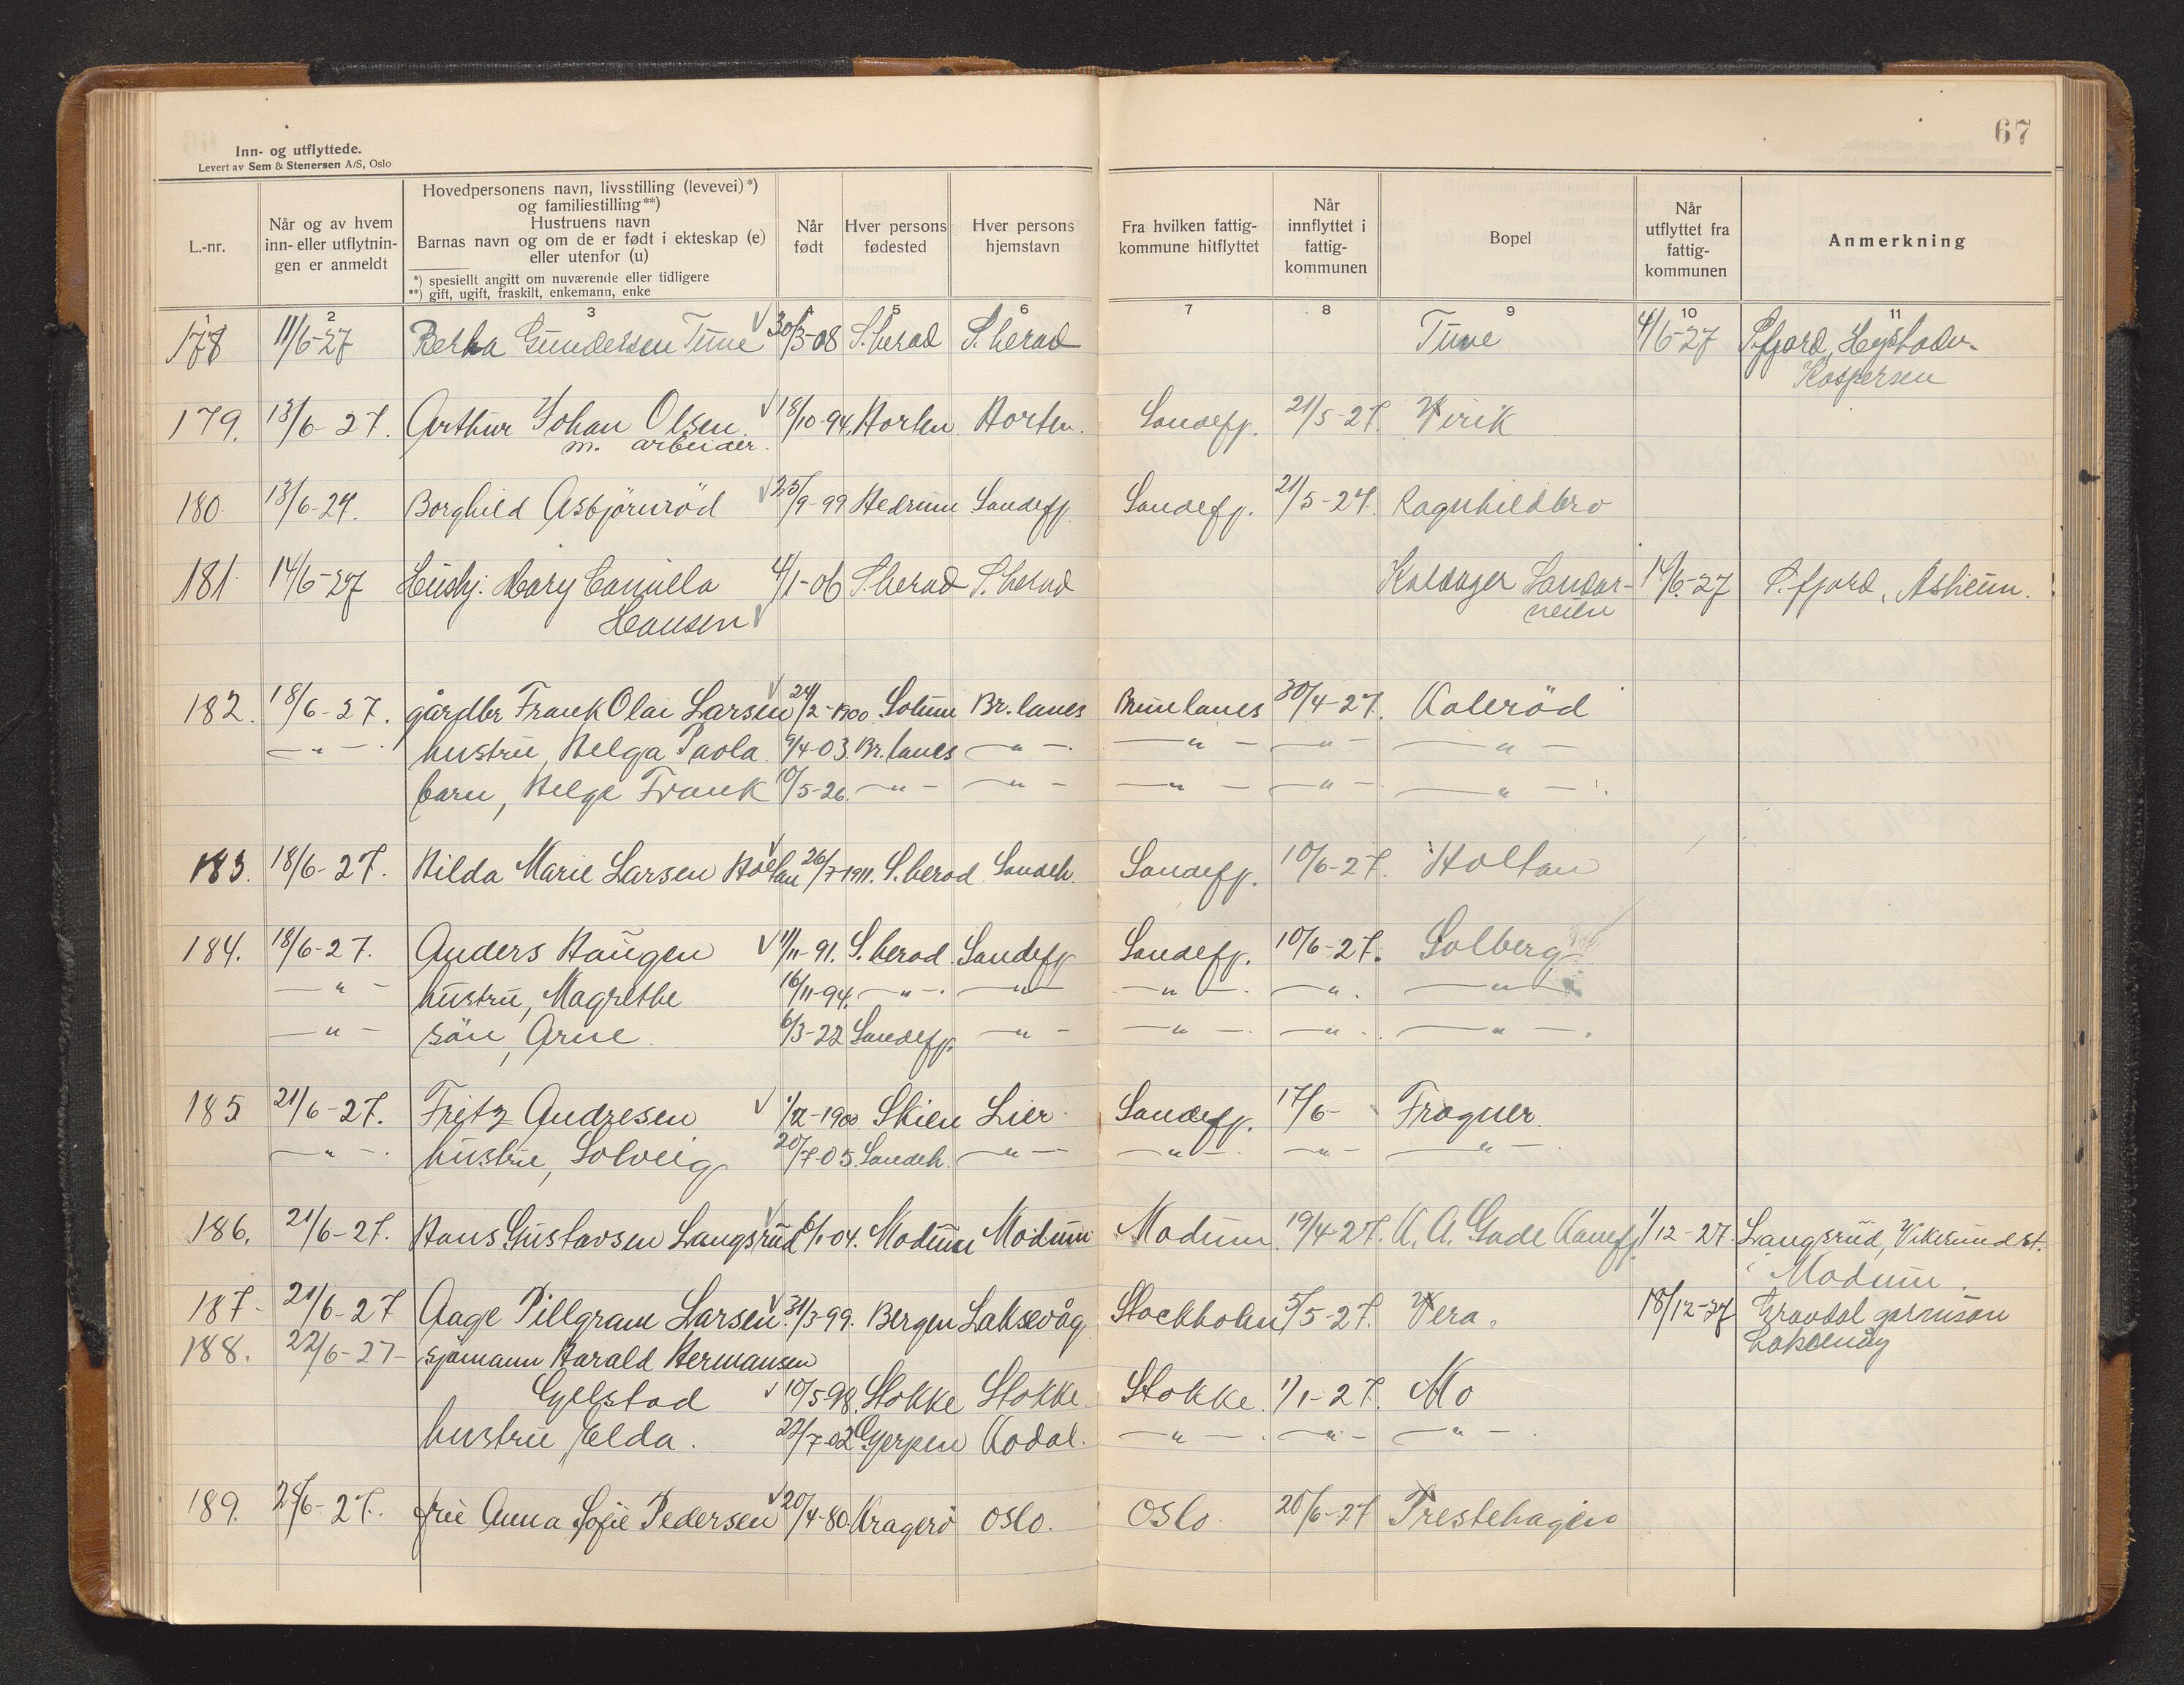 67
Inn- og utflyttede.
Levert av Sem & Stenersen A/S, Oslo
L.-nr. | Når og av hvem inn- eller utflytningen er anmeldt | Hovedpersonens navn, livsstilling (levevei)*) og familiestilling**) Hustruens navn Barnas navn og om de er født i ekteskap (e) eller utenfor (u) *) spesiellt angitt om nuværende eller tidligere **) gift, ugift, fraskilt, enkemann, enke | Når født | Hver persons fødested | Hver persons hjemstavn | Fra hvilken fattigkommune hitflyttet | Når innflyttet i fattigkommunen | Bopel | Når utflyttet fra fattigkommunen | Anmerkning
1 2 3 4 5 6 7 8 9 10 11
178 11/6-27 Gundersen Tune √ 30/3-08 S.herad S.herad Tune 4/6-27 S.fjord,
Kaspersen
179. 13/6-27. Arthur Johan Olsen √ 18/10-94. Horten Horten. Sandefj. 21/5-27. Virik
m. arbeider.
180 13/6-27. Borghild Asbjörnröd √ 25/9-99 Hedrum Sandefj. Sandefj. 21/5-27. Ragnhildbro
181 14/6-27 Hushj. Mary Camilla 4/1-06 S.herad S.herad Kaldager Landar- 14/6-27 S.fjord, Asheim.
Hansen √ veien
182. 18/6-27. gårdbr Frank Olai Larsen √ 24/2-1900 Solum Br.lanes Brunlanes 30/4-27. Kaleröd
— " — hustru, Helga Paola 9/4-03. Br.lanes — " — — " — — " — — " —
barn, Helge Frank 10/5-26. — " — — " — — " — — " — — " —
183. 18/6-27. Hilda Marie Larsen Holtan √ 26/7-1911. S.herad Sandeh. Sandefj. 10/6-27. Holtan
184. 18/6-27. Anders Haugen √ 11/11-91. S.herad Sandefj Sandefj. 10/6-27. Solberg
— " — hustru, Magrethe 16/11-94. — " — — " — — " — — " — — " —
— " — sön, Arne 6/3-22 Sandefj. — " — — " — — " — — " —
185 21/6-27. Fritz Andresen √ 1/2-1900 Skien Lier Sandefj. 17/6- Frogner.
— " — hustru, Solveig 20/7-05. Sandeh. — " — — " — — " — — " —
186. 21/6-27. Hans Gustavsen Langsrud √ 6/1-04. Modum Modum Modum. 19/4-27. A. A. Gade 1/12-27. Langsrud, Vikesund st.
Modum.
187- 21/6-27 Aage Pillgram Larsen √ 31/3-99. Bergen Laksevåg Stockholm 5/5-27. Vera. 18/12-27 Gravdal garnison
Laksevåg
188. 22/6-27- sjömann Harald Hermansen
Gjelstad √ 10/5-98. Stokke Stokke. Stokke. 1/1-27. Mo
hustru Elda. 22/7-02 Gjerpen Kodal. — " — — " — — " —
189. 24/6-27. fru Anna Sofie Pedersen √ 20/4-80. Kragerö Oslo. Oslo. 20/6-27 Prestehagen